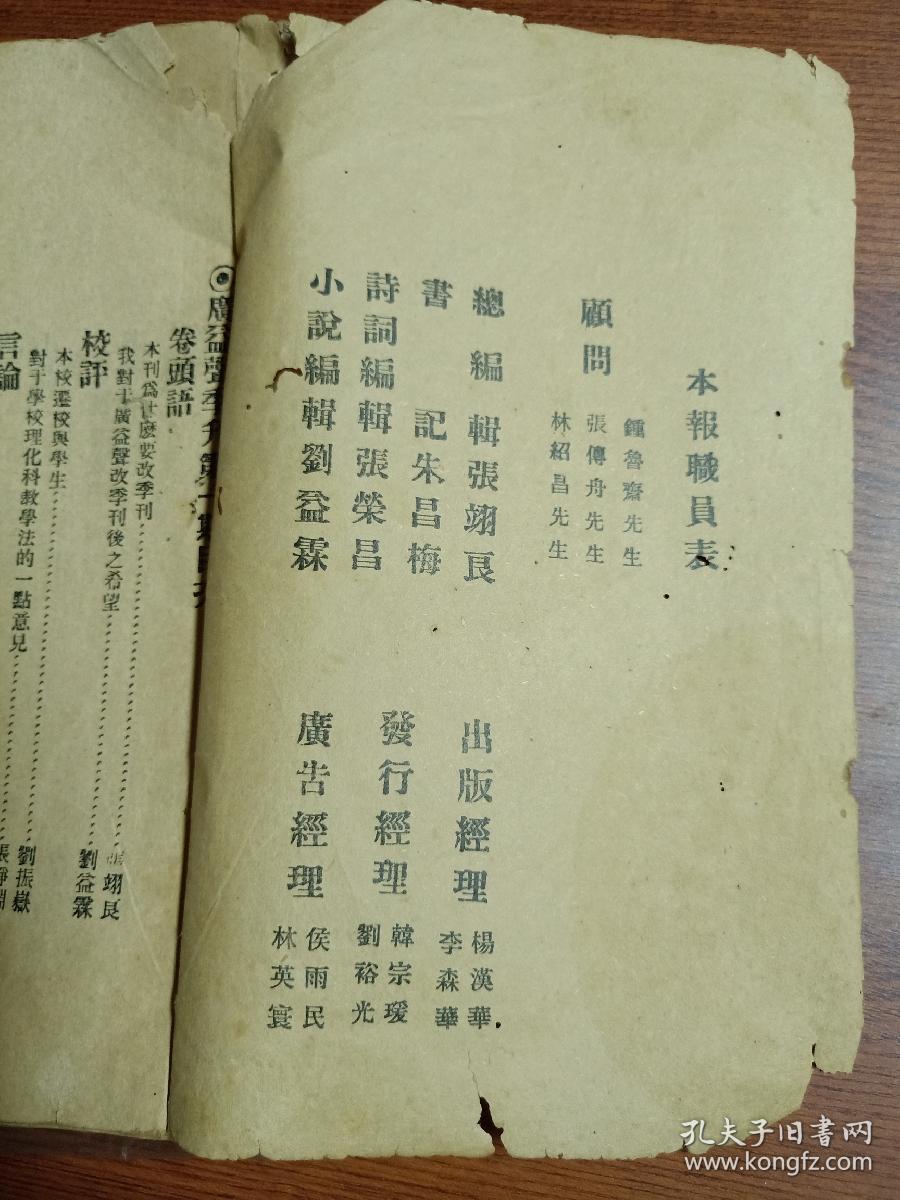 本報職員表
顧問
鍾魯齋先生
張傳舟先生
林紹昌先生
總編輯張翊良
書記朱昌梅
詩詞編輯張榮昌
小說編輯劉益霖
出版經理
楊漢華
李森華
發行經理
韓宗瑗
劉裕光
廣告經理
侯雨民
林英寰
◉廣益聲季刊第一期目
卷頭語
本刊爲甚麽要改季刊………張翊良
我對于廣益聲改季刊後之希望………劉益霖
校評
本校遷校與學生………劉振嶽
對于學校理化科教學法的一點意見………張靜淵
言論
孔夫子旧书网
www.kongfz.com